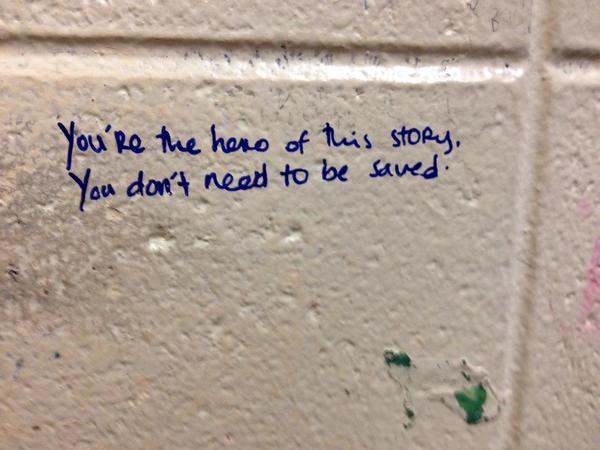 You're the hero of this story.
You don't need to be saved.